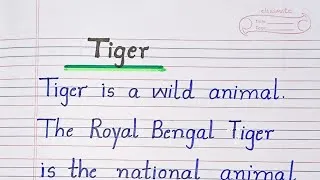 Tiger
Tiger is a wild animal.
The Royal Bengal Tiger
is the national animal